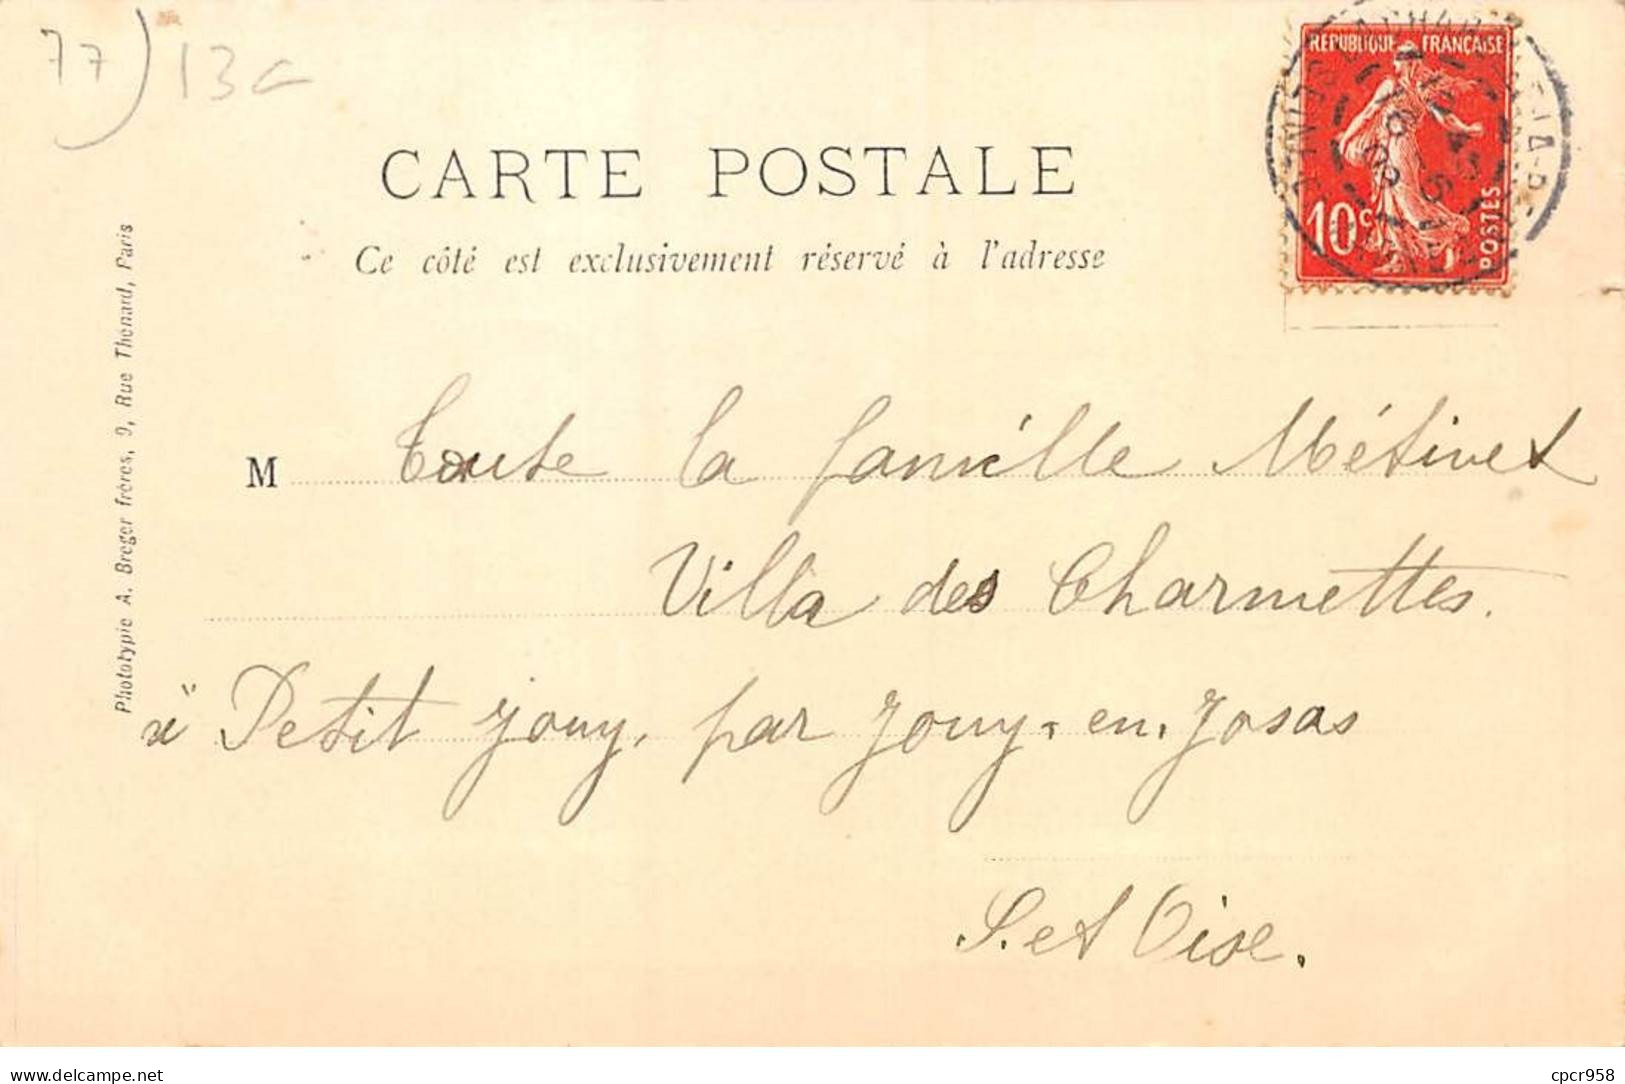 77) 13c
RÉPUBLIQUE FRANÇAISE
10c POSTES
CARTE POSTALE
Ce côté est exclusivement réservé à l'adresse
Phototypie A. Breger frères, 9, Rue Thénard, Paris
M Toute la famille Métivet
Villa des Charmettes.
à Petit Jouy, par Jouy-en-Josas
S. et Oise.
cpcr958